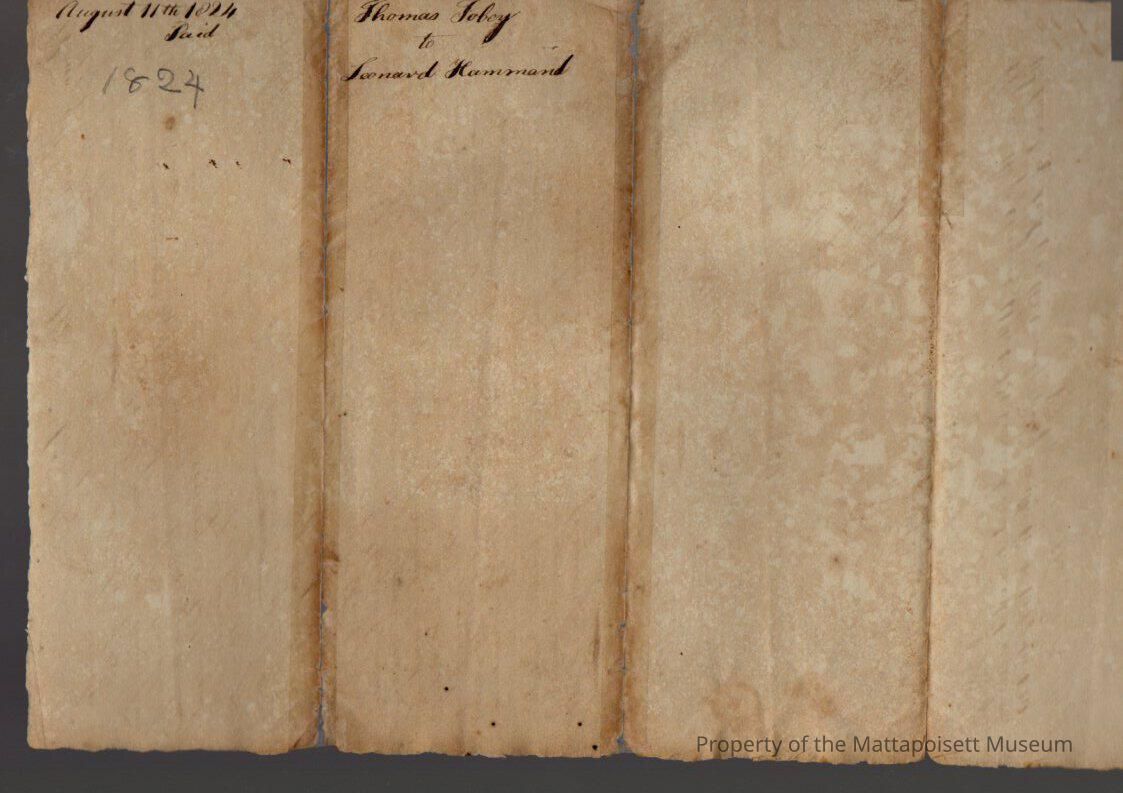 August 11th 1824
Paid
1824
Thomas Tobey
to
Leonard Hammand
Property of the Mattapoisett Museum